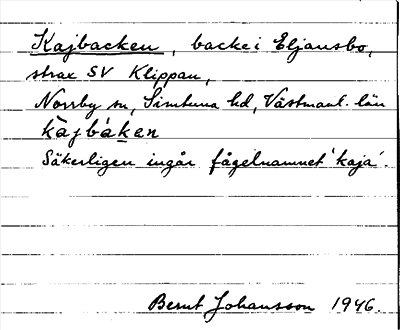 Kajbacken, backe i Eljansbo,
strax SV Klippan,
Norrby sn, Simtuna hd, Västmanl. län
kàjbáken
Säkerligen ingår fågelnamnet 'kaja'.
Bernt Johansson 1946.